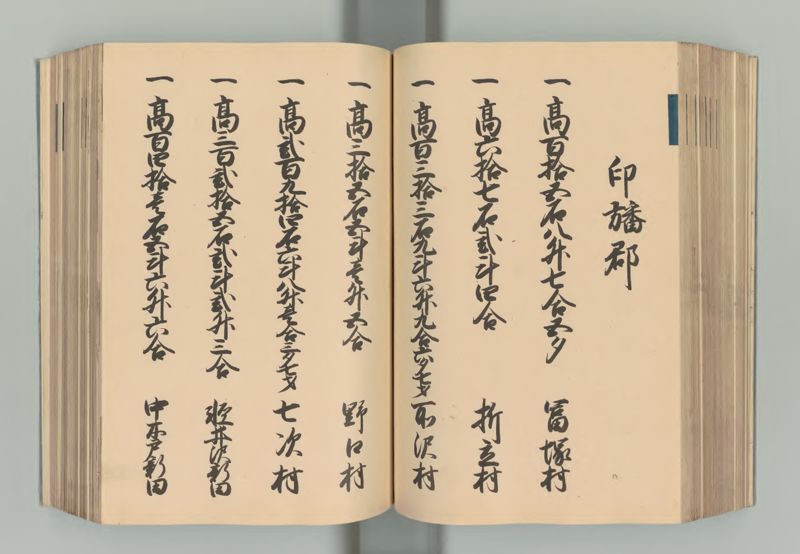 印旛郡
一 高百拾五石八升七合五夕 冨塚村
一 高六拾七石弐斗四合 折立村
一 高百三拾三石九斗六升九合六夕七才 所沢村
一 高三拾五石五斗壱升五合 野口村
一 高弐百九拾四石六斗八升壱合三夕七才 七次村
一 高三百弐拾五石弐斗弐升三合 軽井沢新田
一 高百四拾壱石五斗六升六合 中木戸新田